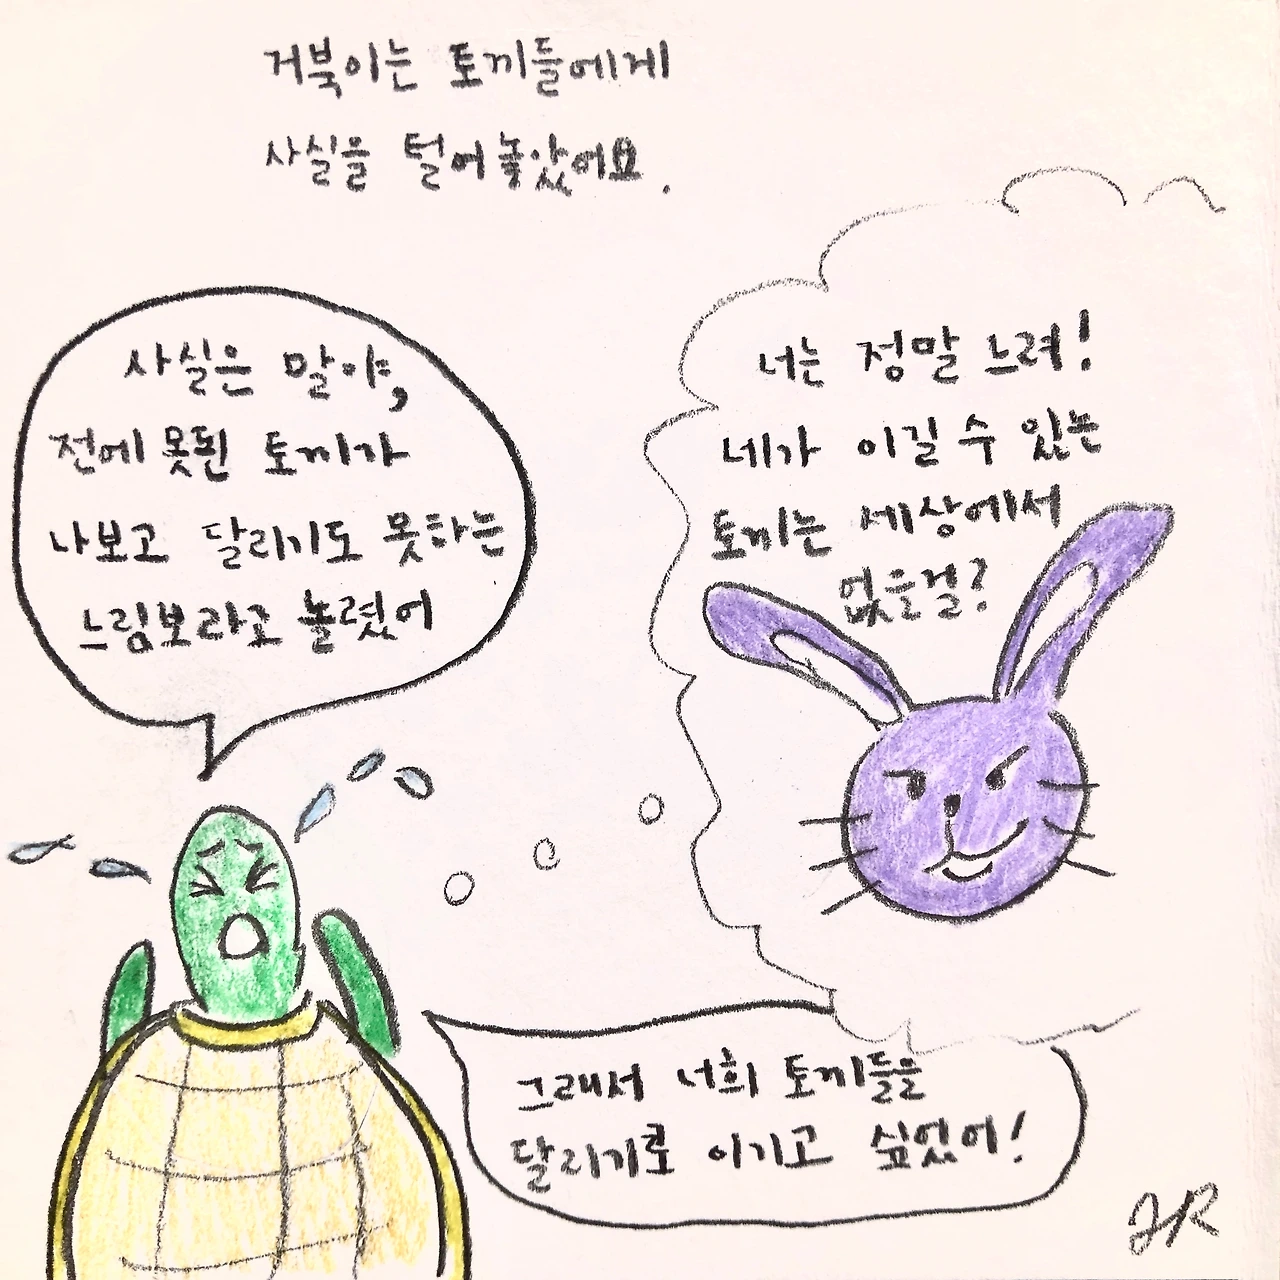 거북이는 토끼들에게
사실을 털어놓았어요.
사실은 말야,
전에 못된 토끼가
나보고 달리기도 못하는
느림보라고 놀렸어
너는 정말 느려!
네가 이길 수 있는
토끼는 세상에서
없을걸?
그래서 너희 토끼들을
달리기로 이기고 싶었어!
JR